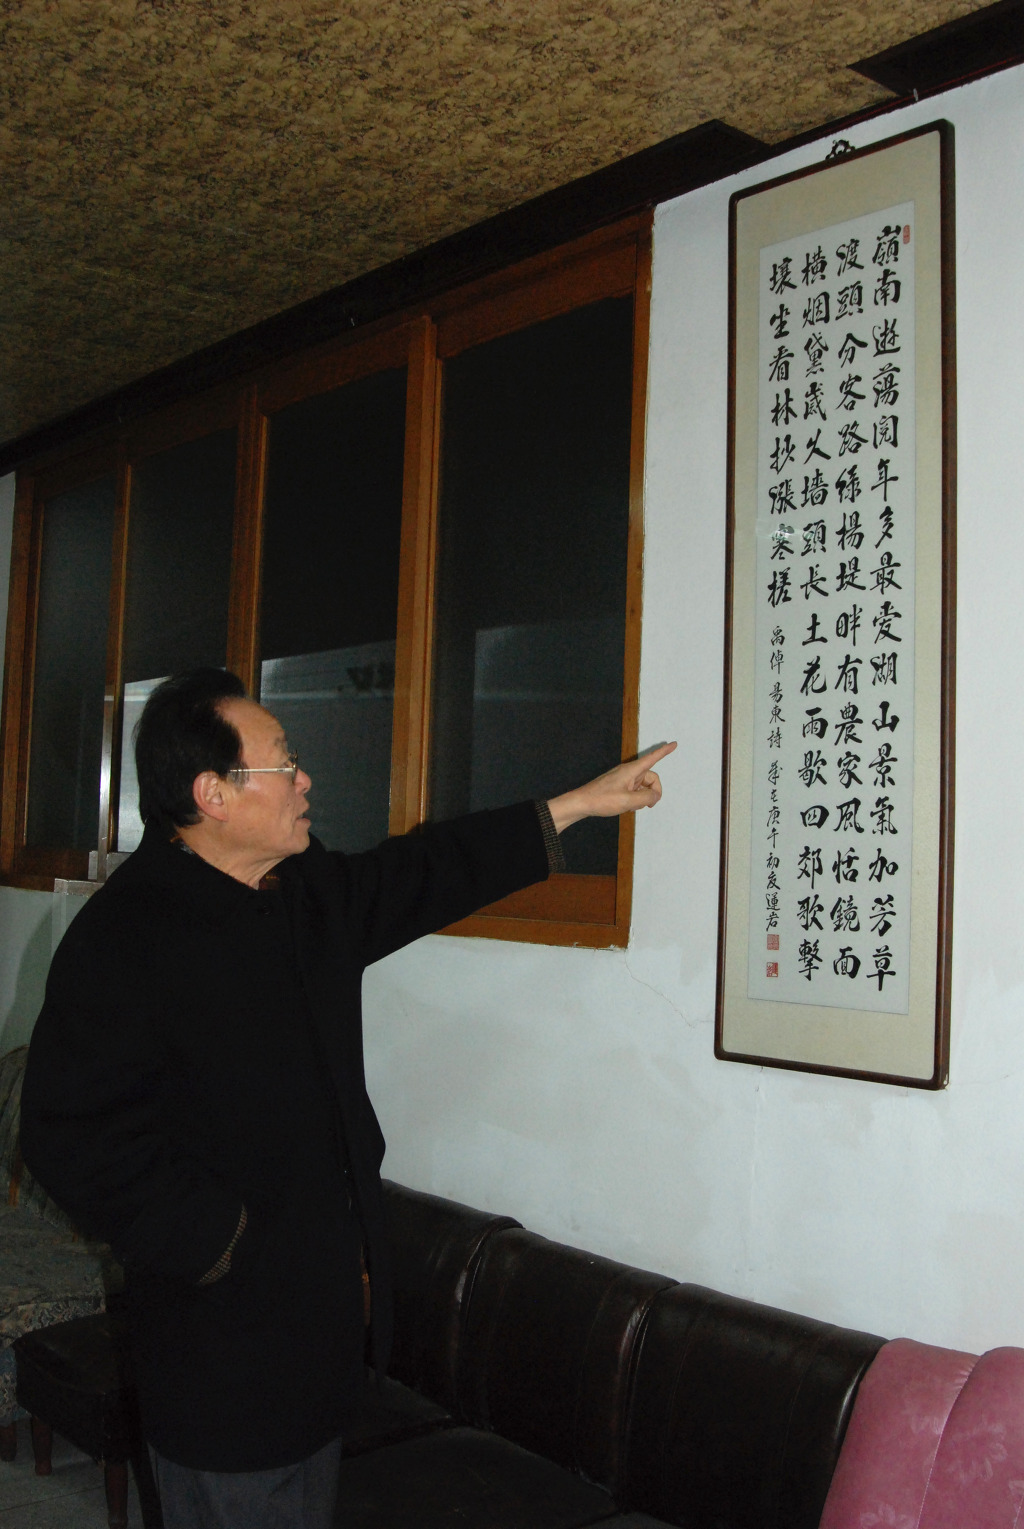 嶺南遊蕩閱年多最愛湖山景氣加芳草
渡頭分客路綠楊堤畔有農家風恬鏡面
橫烟黛歲久墻頭長土花雨歇四郊歌擊
壤坐看林杪漲寒槎 禹倬易東詩 歲在庚午初夏蓮岩